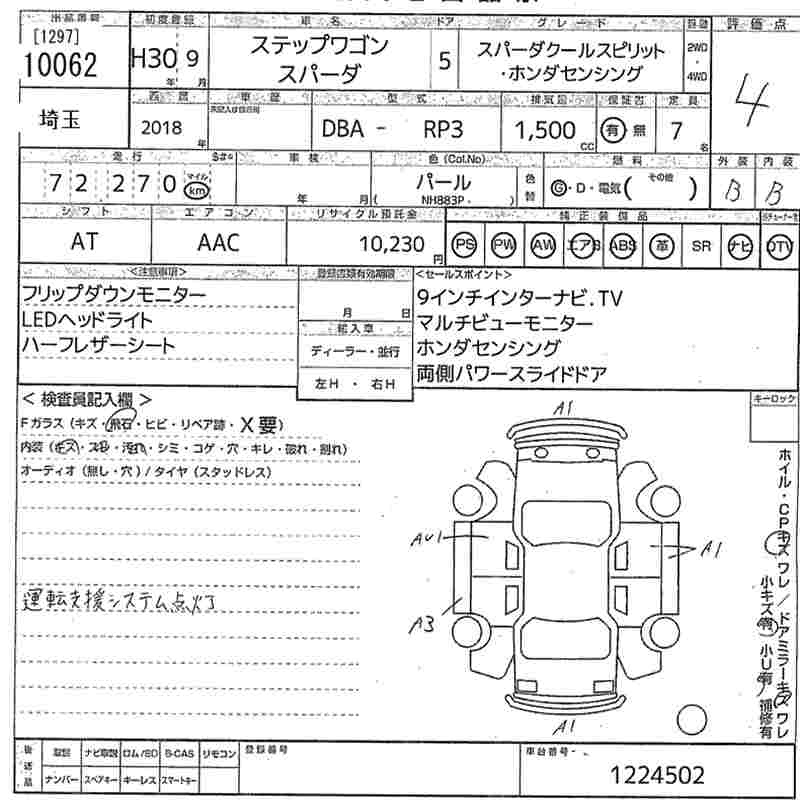 出品番号 初度登録 車名 ドア グレード 駆動 評価点
[1297]
10062 H30 9 ステップワゴン スパーダ 5 スパーダクールスピリット ・ホンダセンシング 2WD ・ 4WD 4
年 月
埼玉 西暦 車歴 型式 排気量 保証書 定員
2018 年 DBA - RP3 1,500 cc 有 無 7 名
走行 S#* 車検 色(Col.No) 燃料 外装 内装
72,270 マイル km 年 月 パール 色替 G・D・電気( その他 ) B B
( NH883P・ )
シフト エアコン リサイクル預託金 純正装備品
AT AAC 10,230 円 PS PW AW エアB ABS 革 SR ナビ DTV
<注意事項> 登録書類有効期限 <セールスポイント>
フリップダウンモニター 月 日 9インチインターナビ.TV
LEDヘッドライト 輸入車 マルチビューモニター
ハーフレザーシート ディーラー・並行 ホンダセンシング
左H・右H 両側パワースライドドア
<検査員記入欄> キーロック
Fガラス(キズ・飛石・ヒビ・リペア跡・X要)
内装(キズ・スレ・汚れ・シミ・コゲ・穴・キレ・破れ・割れ)
オーディオ(無し・穴)/タイヤ(スタッドレス)
運転支援システム点灯
A1
AU1
A1
A3
A1
ホイル・CPキズワレ/ドアミラーキズワレ
小キズ有 小U有 補修有
後送品 取説 ナビ取説 ロム/SD B-CAS リモコン 登録番号 車台番号
ナンバー スペアキー キーレス スマートキー 1224502